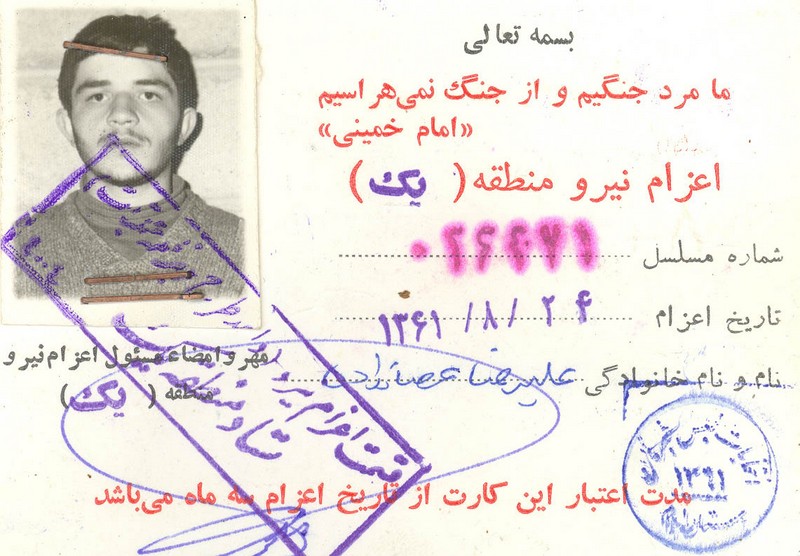 بسمه تعالی
ما مرد جنگیم و از جنگ نمی‌هراسیم
«امام خمینی»
اعزام نیرو منطقه ( یک )
شماره مسلسل ۰۲۶۴۷۱
تاریخ اعزام ۲۴ / ۸ / ۱۳۶۱
نام و نام خانوادگی علیرضا
مهر و امضاء مسئول اعزام نیرو
منطقه ( یک )
مدت اعتبار این کارت از تاریخ اعزام سه ماه می‌باشد
اعزام نیرو
۱۳۶۱